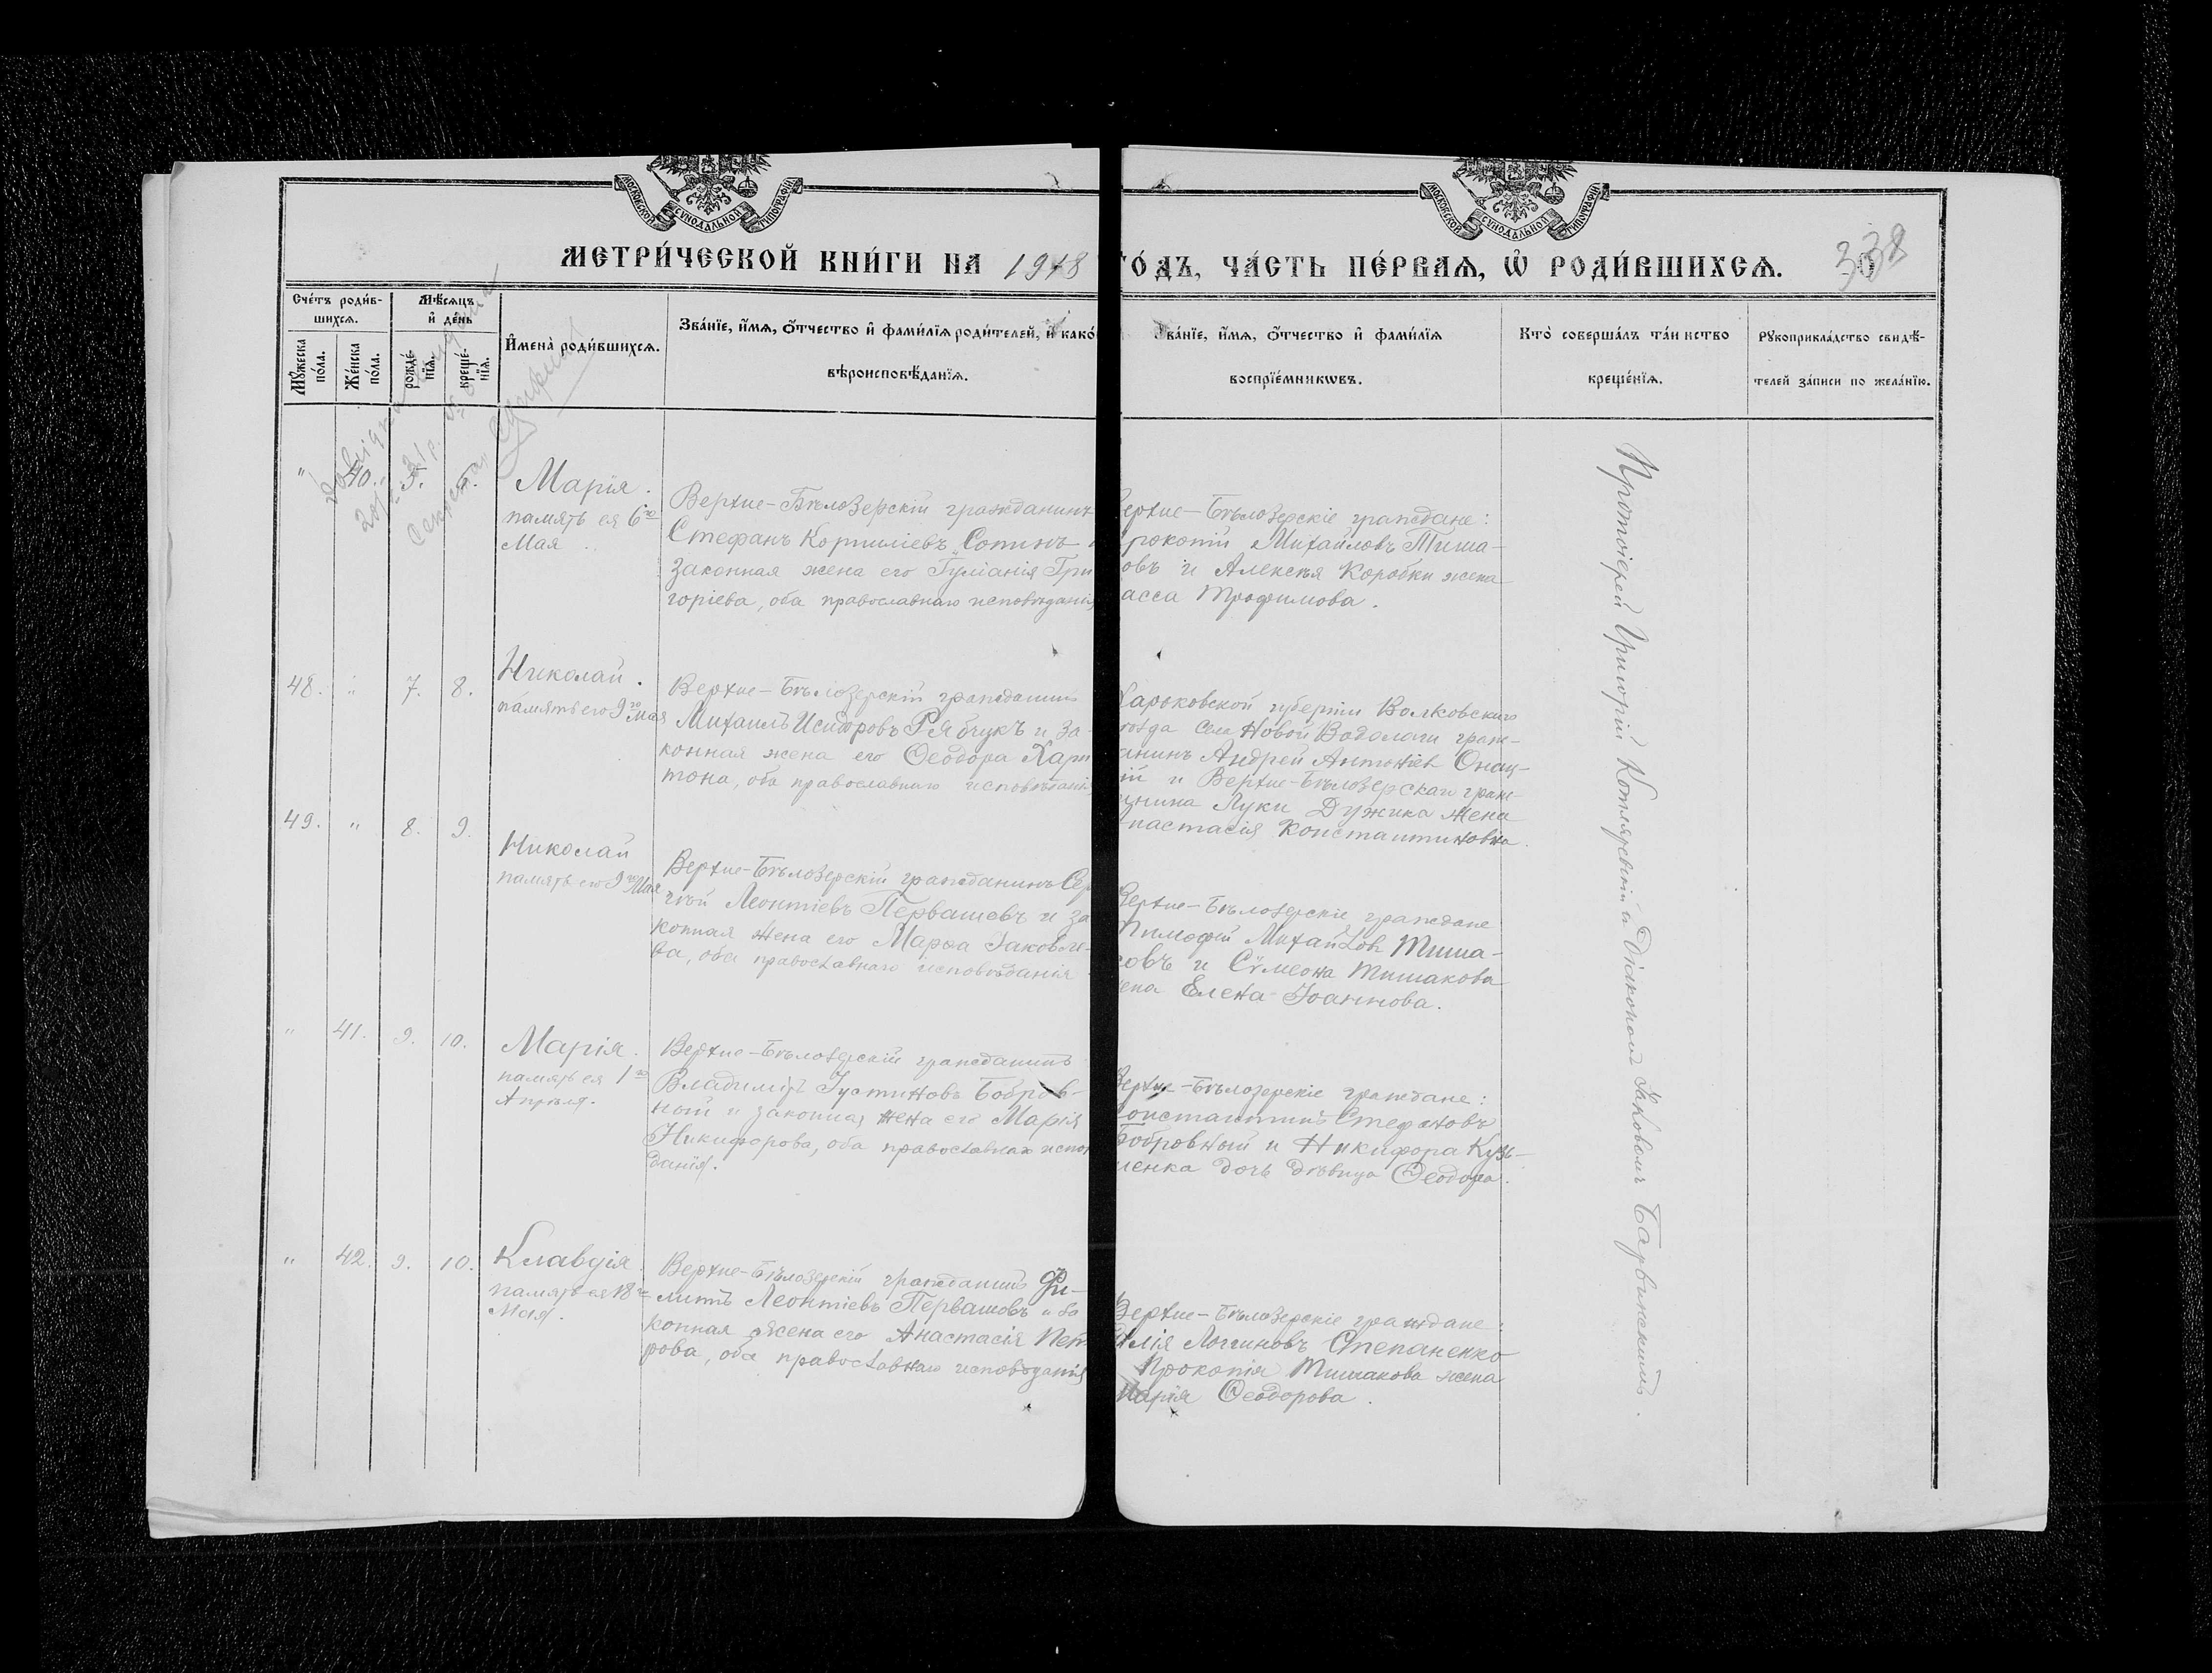 МОСКОВСКОЙ СѴНОДАЛЬНОЙ ТИПОГРАФІИ
МОСКОВСКОЙ СѴНОДАЛЬНОЙ ТИПОГРАФІИ
МЕТРИ́ЧЕСКОЙ КНИ́ГИ НА 1918
ГО́ДЪ, ЧА́СТЬ ПЕ́РВАѦ, Ѡ҆ РОДИ́ВШИХСѦ.
338
Сче́тъ роди́в-
шихсѧ.
Мѣ́сѧцъ
и҆ де́нь
Мꙋ́жеска
по́ла.
Же́нска
по́ла.
рожде́-
нїѧ.
креще́-
нїѧ.
И҆мена̀ роди́вшихсѧ.
Зва́нїе, и҆́мѧ, ѻ҆́тчество и҆ фами́лїѧ роди́телей, и҆ како́
вѣроисповѣ́данїѧ.
Зва́нїе, и҆́мѧ, ѻ҆́тчество и҆ фами́лїѧ
воспрїе́мникѡвъ.
Кто̀ соверша́лъ та́инство
креще́нїѧ.
Рꙋкоприкла́дство свидѣ́-
телей за́писи по жела́нїю.
" 40. 5. 5.
Марія.
память ея 6го
Мая
Верхне-Бѣлозерскій гражданинъ
Стефанъ Корниліевъ Сопинъ
законная жена его Іуліанія Гри
горіева, оба православнаго исповѣданія
ерхне-Бѣлозерскіе граждане:
рокопій Михайловъ Тиша-
овъ и Алексѣя Коробки жена
асса Трофимова.
48. " 7. 8.
Николай.
память его 9го Мая
Верхне-Бѣлозерскій гражданинъ
Михаилъ Исидоровъ Рябчукъ и за-
конная жена его Ѳеодора Хари
тона, оба православнаго исповѣданія
Харьковской губерніи Валковскаго
уѣзда села Новой Водолаги граж-
анинъ Андрей Антоніев Онац-
ій и Верхне-Бѣлозерскаго граж-
нина Луки Дужика жена
настасія Константиновна.
49. " 8. 9.
Николай
память его 9го Мая
Верхне-Бѣлозерскій гражданинъ Сер
гѣй Леонтіевъ Первашевъ и за
конная жена его Марѳа Іаковле-
ва, оба православнаго исповѣданія
Верхне-Бѣлозерскіе граждане
Тимофей Михайлов Тиша-
ковъ и Сѵмеона Тишакова
ена Елена Іоаннова.
" 41. 9. 10.
Марія.
память ея 1го
Апрѣля.
Верхне-Бѣлозерскій гражданинъ
Владиміръ Іустиновъ Бобров-
ной и законная жена его Марія
Никифорова, оба православнаго испов
данія.
Верхне-Бѣлозерскіе граждане:
Константинъ Стефановъ
Бобровный и Никифора Кузь-
менка дочь дѣвица Ѳеодора.
" 42. 9. 10.
Клавдія.
память ея 18го
Мая.
Верхне-Бѣлозерскій гражданинъ Фи-
липъ Леонтіевъ Первашовъ и за
конная жена его Анастасія Пет
рова, оба православнаго исповѣданія
Верхне-Бѣлозерскіе граждане:
Илія Логгиновъ Степаненко
Прокопія Тишакова жена
Марія Ѳеодорова.
Протоіерей Григорій Котляревскій съ Діакономъ Іаковомъ Барвинскимъ.